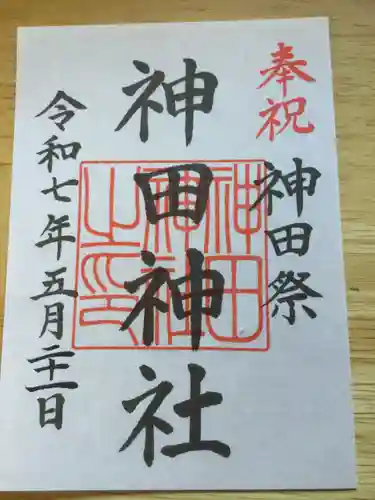 奉祝
神田祭
神田神社
神田神社之印
令和七年五月二十一日